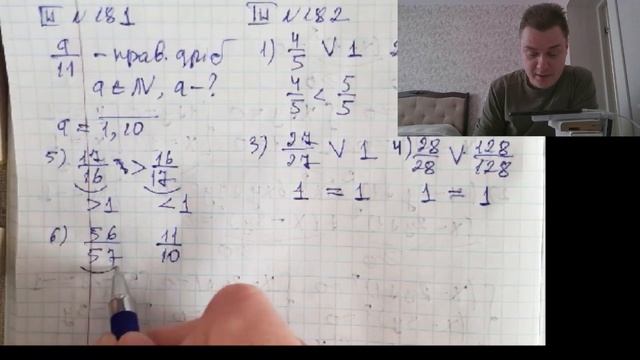 III № 181
a/11 - прав. дроб
a ∈ N, a - ?
a = 1,10
5) 17/16 > 16/17
>1 <1
6) 56/57 11/10
III № 182
1) 4/5 V 1
4/5 < 5/5
3) 27/27 V 1
1 = 1
4) 28/28 V 128/128
1 = 1